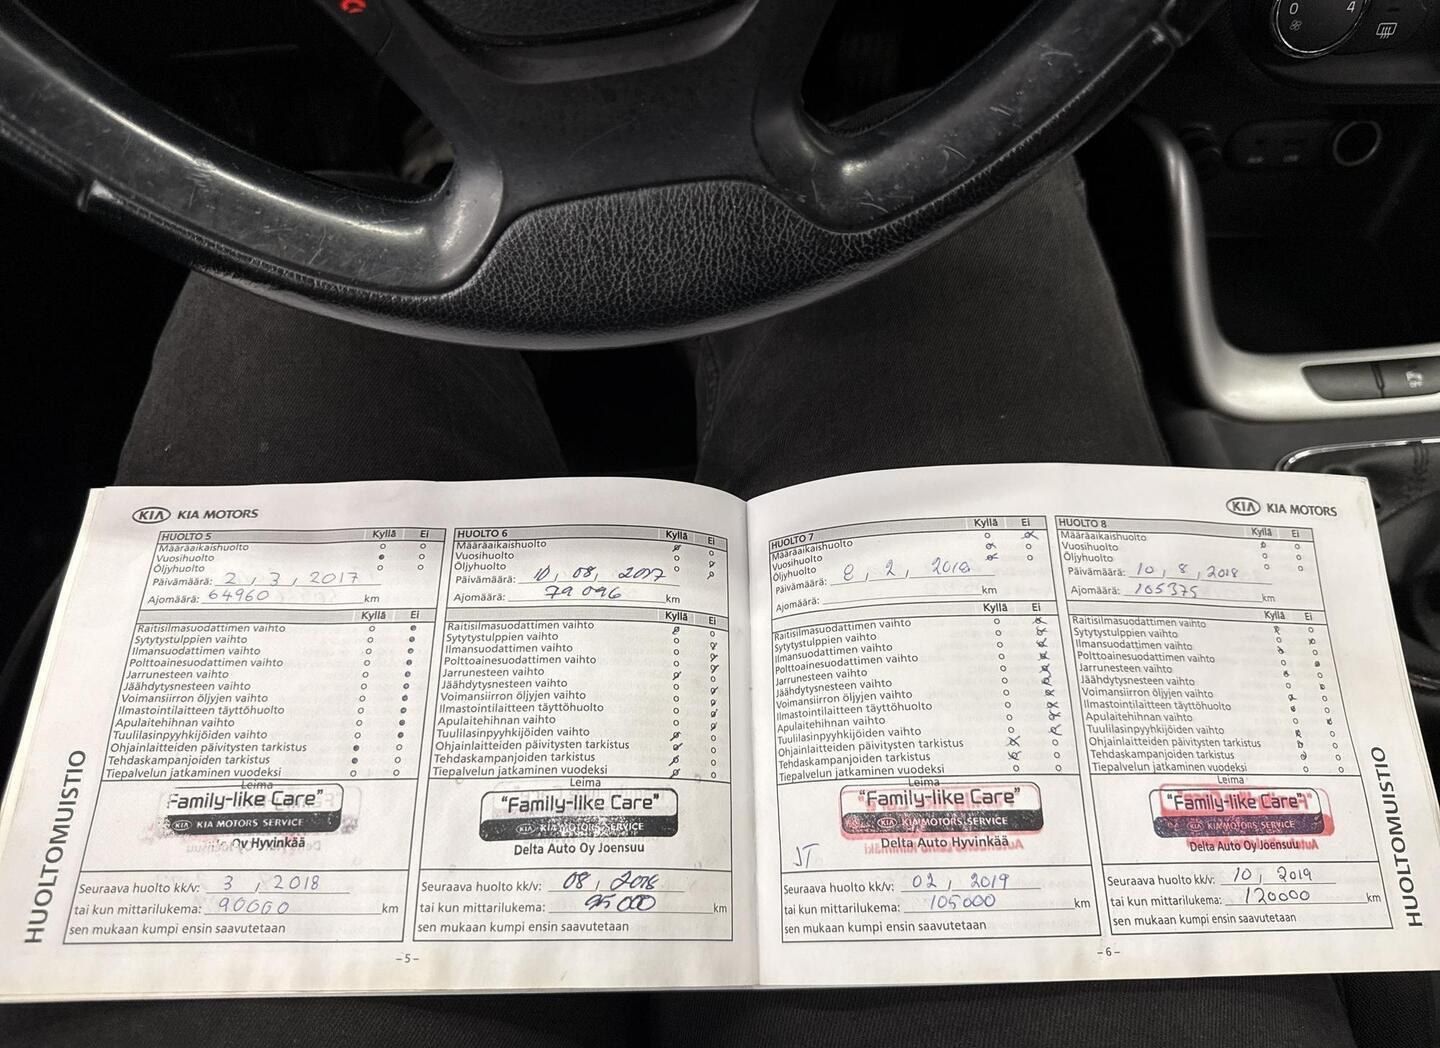 0 4
KIA KIA MOTORS
HUOLTOMUISTIO
HUOLTO 5 Kyllä Ei
Määräaikaishuolto
Vuosihuolto
Öljyhuolto
Päivämäärä: 2, 3, 2017
Ajomäärä: 64960 km
Kyllä Ei
Raitisilmasuodattimen vaihto
Sytytystulppien vaihto
Ilmansuodattimen vaihto
Polttoainesuodattimen vaihto
Jarrunesteen vaihto
Jäähdytysnesteen vaihto
Voimansiirron öljyjen vaihto
Ilmastointilaitteen täyttöhuolto
Apulaitehihnan vaihto
Tuulilasinpyyhkijöiden vaihto
Ohjainlaitteiden päivitysten tarkistus
Tehdaskampanjoiden tarkistus
Tiepalvelun jatkaminen vuodeksi
Leima
"Family-like Care"
KIA KIA MOTORS SERVICE
Oy Hyvinkää
Seuraava huolto kk/v: 3, 2018
tai kun mittarilukema: 90000 km
sen mukaan kumpi ensin saavutetaan
HUOLTO 6 Kyllä Ei
Määräaikaishuolto
Vuosihuolto
Öljyhuolto
Päivämäärä: 10, 08, 2017
Ajomäärä: 79 096 km
Kyllä Ei
Raitisilmasuodattimen vaihto
Sytytystulppien vaihto
Ilmansuodattimen vaihto
Polttoainesuodattimen vaihto
Jarrunesteen vaihto
Jäähdytysnesteen vaihto
Voimansiirron öljyjen vaihto
Ilmastointilaitteen täyttöhuolto
Apulaitehihnan vaihto
Tuulilasinpyyhkijöiden vaihto
Ohjainlaitteiden päivitysten tarkistus
Tehdaskampanjoiden tarkistus
Tiepalvelun jatkaminen vuodeksi
Leima
"Family-like Care"
KIA KIA MOTORS SERVICE
Delta Auto Oy Joensuu
Seuraava huolto kk/v: 08, 2018
tai kun mittarilukema: 95 000 km
sen mukaan kumpi ensin saavutetaan
-5-
KIA KIA MOTORS
HUOLTOMUISTIO
HUOLTO 7 Kyllä Ei
Määräaikaishuolto
Vuosihuolto
Öljyhuolto
Päivämäärä: 8, 2, 2018
Ajomäärä: km
Kyllä Ei
Raitisilmasuodattimen vaihto
Sytytystulppien vaihto
Ilmansuodattimen vaihto
Polttoainesuodattimen vaihto
Jarrunesteen vaihto
Jäähdytysnesteen vaihto
Voimansiirron öljyjen vaihto
Ilmastointilaitteen täyttöhuolto
Apulaitehihnan vaihto
Tuulilasinpyyhkijöiden vaihto
Ohjainlaitteiden päivitysten tarkistus
Tehdaskampanjoiden tarkistus
Tiepalvelun jatkaminen vuodeksi
Leima
"Family-like Care"
KIA KIA MOTORS SERVICE
Delta Auto Hyvinkää
JT
Seuraava huolto kk/v: 02, 2019
tai kun mittarilukema: 105000 km
sen mukaan kumpi ensin saavutetaan
HUOLTO 8 Kyllä Ei
Määräaikaishuolto
Vuosihuolto
Öljyhuolto
Päivämäärä: 10, 8, 2018
Ajomäärä: 105375 km
Kyllä Ei
Raitisilmasuodattimen vaihto
Sytytystulppien vaihto
Ilmansuodattimen vaihto
Polttoainesuodattimen vaihto
Jarrunesteen vaihto
Jäähdytysnesteen vaihto
Voimansiirron öljyjen vaihto
Ilmastointilaitteen täyttöhuolto
Apulaitehihnan vaihto
Tuulilasinpyyhkijöiden vaihto
Ohjainlaitteiden päivitysten tarkistus
Tehdaskampanjoiden tarkistus
Tiepalvelun jatkaminen vuodeksi
Leima
"Family-like Care"
KIA KIA MOTORS SERVICE
Delta Auto Oy Joensuu
Seuraava huolto kk/v: 10, 2019
tai kun mittarilukema: 120000 km
sen mukaan kumpi ensin saavutetaan
-6-